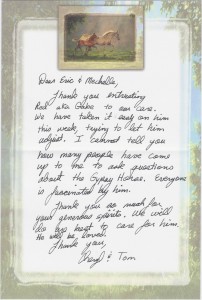 Dear Eric & Mechelle,
Thank you entrusting
Red aka Gabe to our care.
We have taken it easy on him
this week, trying to let him
adjust. I cannot tell you
how many people have come
up to me to ask questions
about the Gypsy Horse. Everyone
is fascinated by him.
Thank you so much for
your generous spirits. We will
do our best to care for him.
He will be loved.
Thank you,
Cheryl & Tom